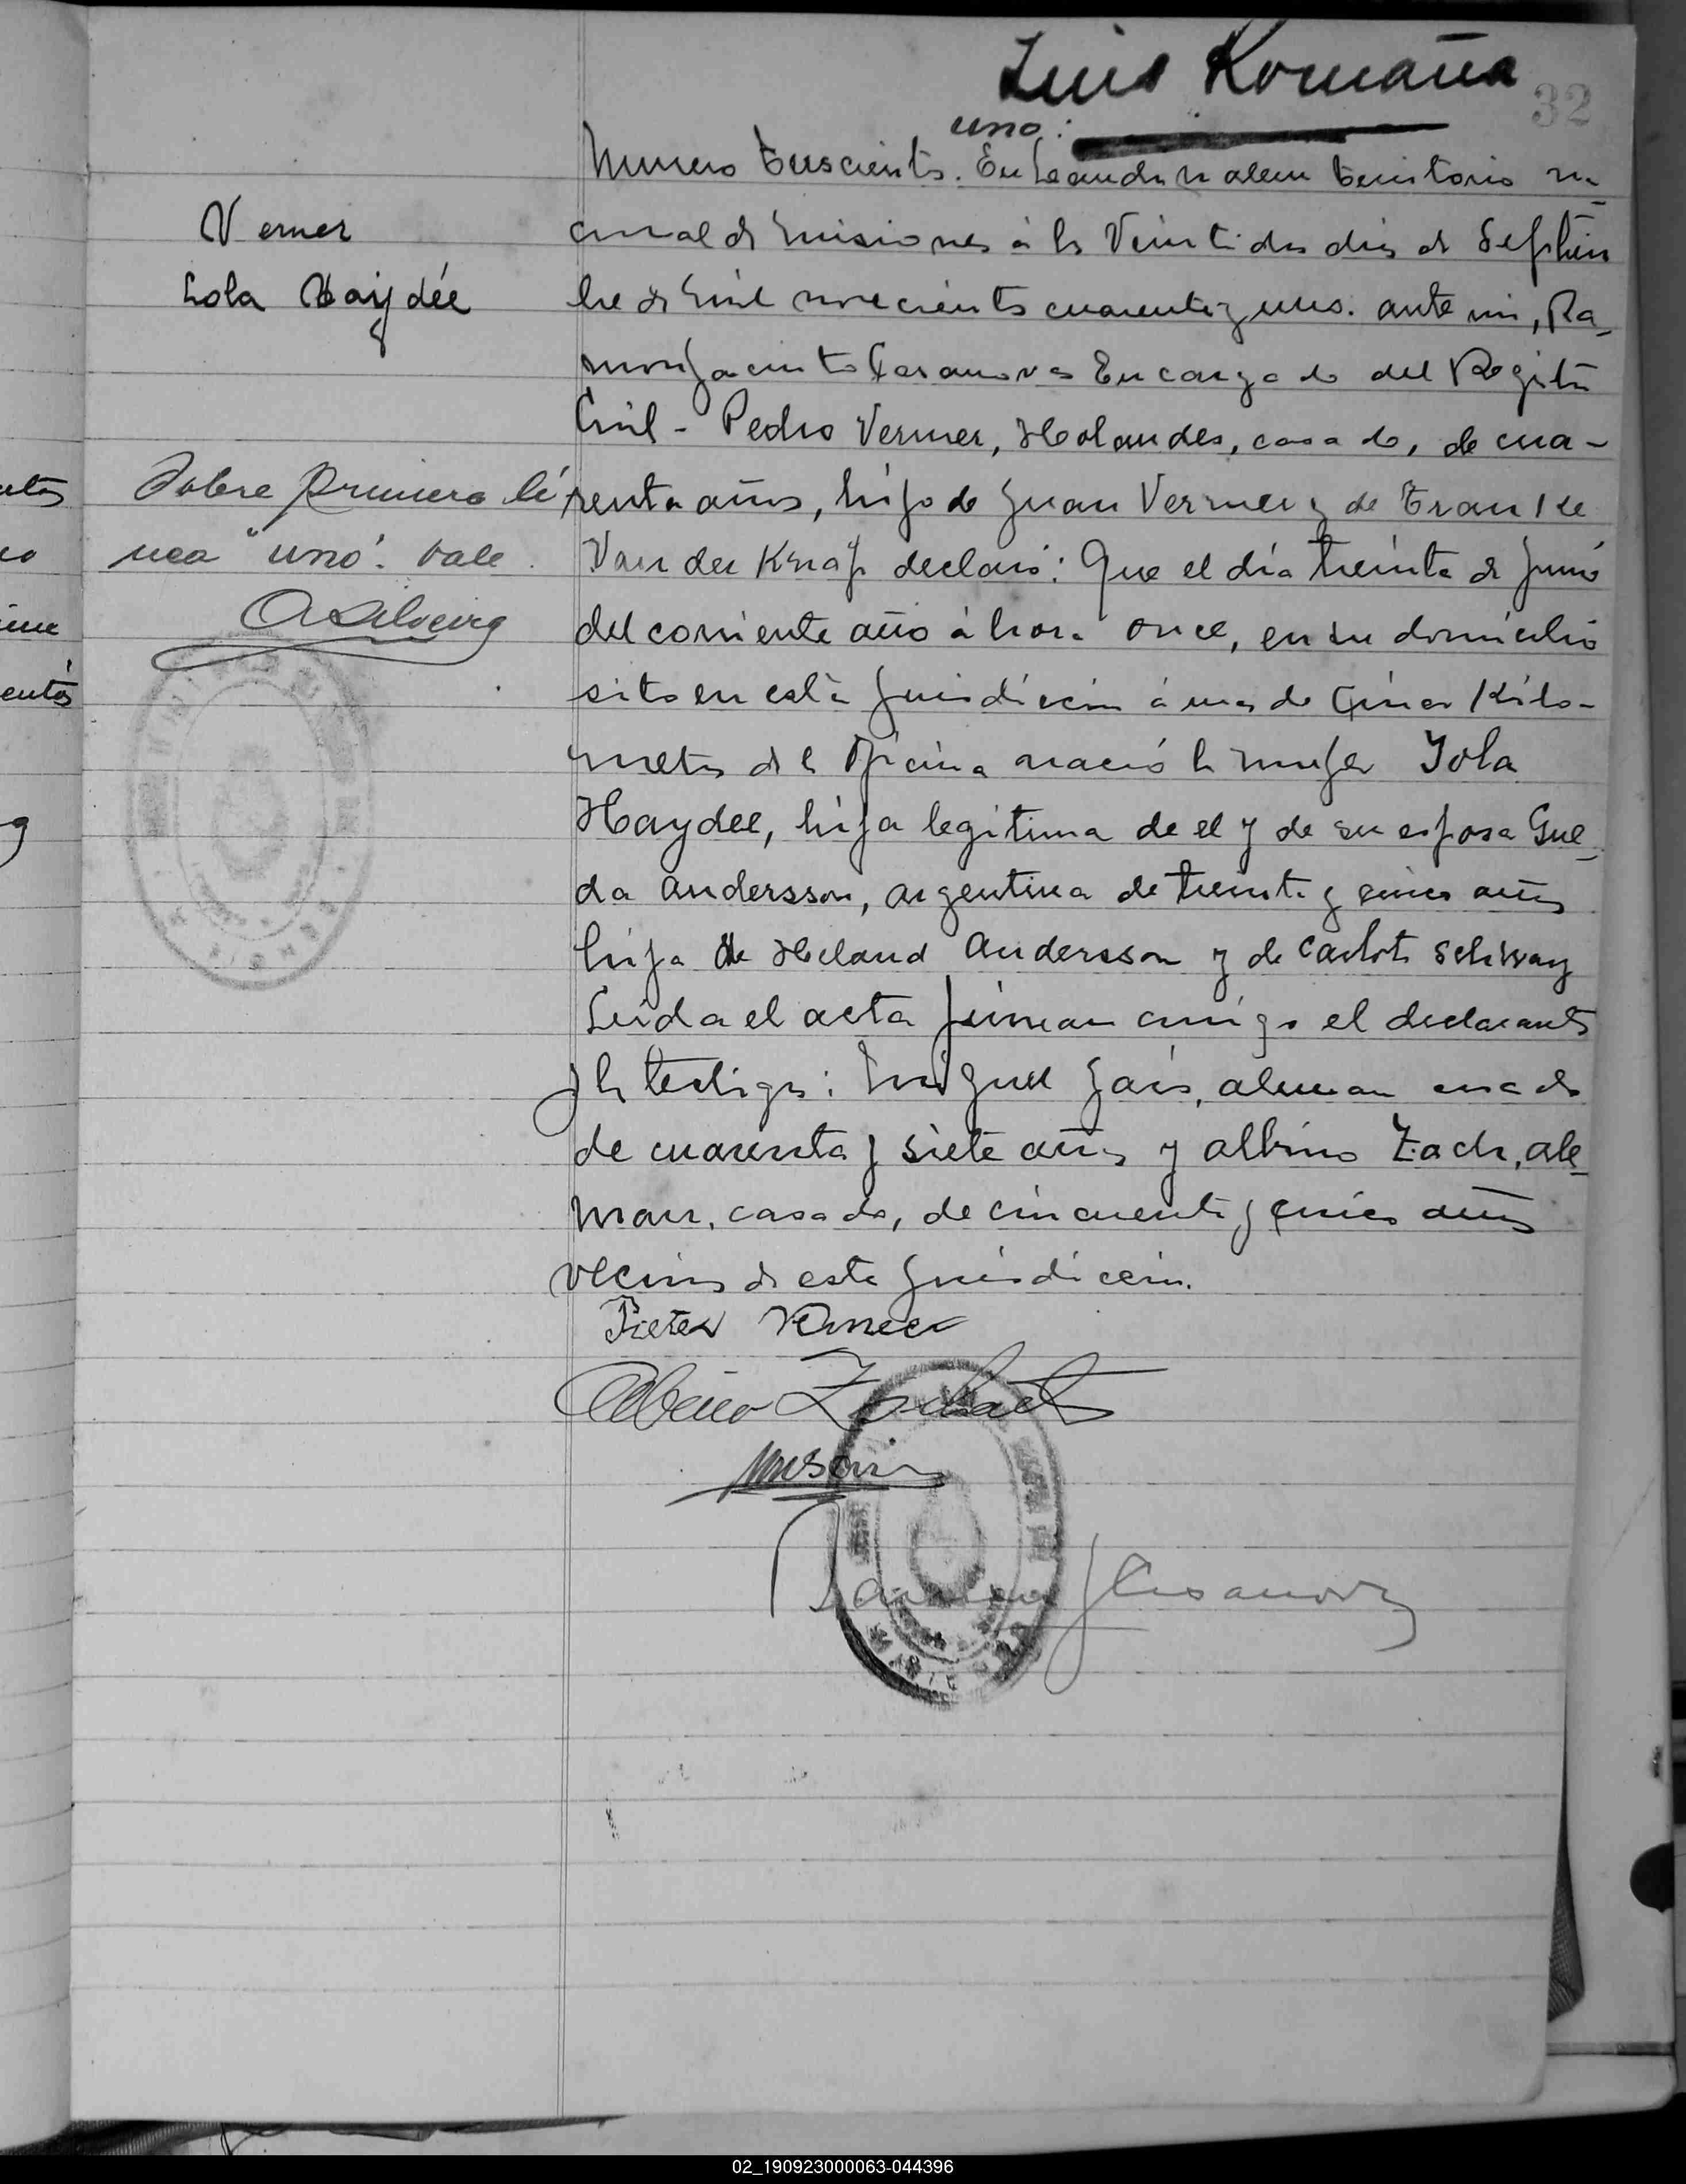 Luis Romaña
32
uno:
Numero Trescients. En Leandro N alem territorio na-
cional de Misiones á los Veintidos dias de Septiem
bre de Mil novecients cuarentiy uno. ante mi, Ra-
mon Jacinto Casanova Encargado del Registro
Civil - Pedro Vermer, Holandes, casado, de cua-
renta años, hijo de Juan Vermer y de Tranke
Van der Knap declaró: Que el día treinta de Junio
del corriente año á hora once, en su domicilio
sito en esta Jurisdiccion á mas de Cinco Kilo-
metros de la Oficina nació la mujer Lola
Haydee, hija legitima de el y de su esposa Gue-
da Andersson, argentina de treinta y cinco años
hija de Heland Andersson y de Carlota Schway
Leida el acta firman conmigo el declarante
y los testigos: Miguel Gais, aleman casado
de cuarenta y siete años y albino Zach, ale-
man, casado, de cincuenta y cinco años
vecinos de esta Jurisdiccion.
Pieter Vermeer
Albino
Ramon J Casanova
Verner
Lola Haydée
Sobre primera lí
nea "uno". Vale.
ASilveira
entos
02_190923000063-044396